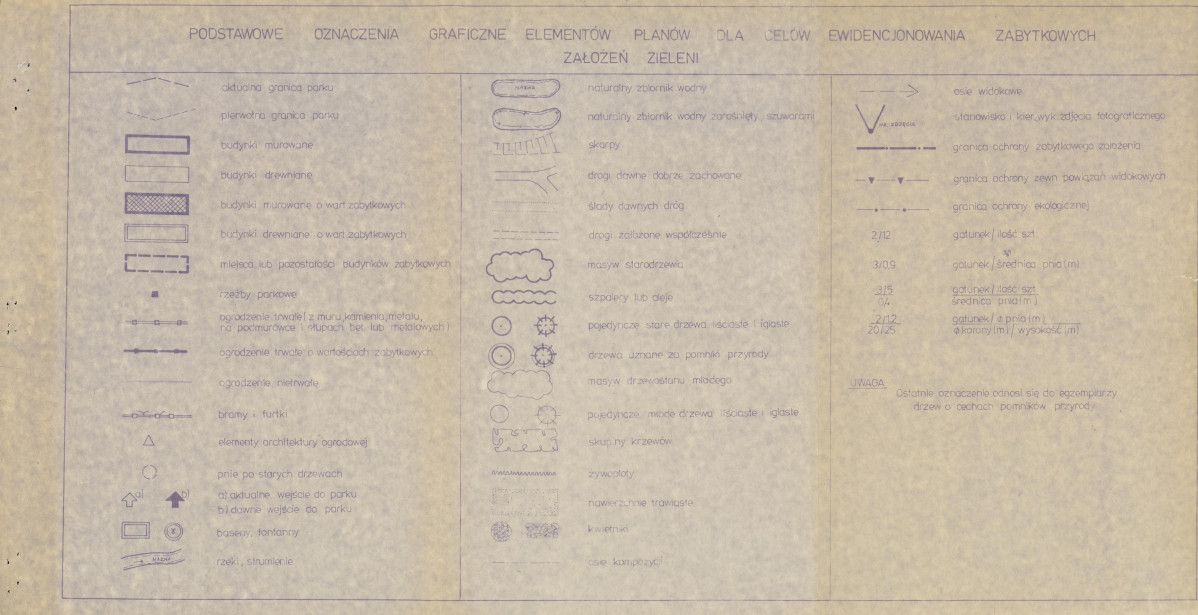 PODSTAWOWE OZNACZENIA GRAFICZNE ELEMENTÓW PLANÓW DLA CELÓW EWIDENCJONOWANIA ZABYTKOWYCH
ZAŁOŻEŃ ZIELENI
aktualna granica parku
pierwotna granica parku
budynki murowane
budynki drewniane
budynki murowane o wart. zabytkowych
budynki drewniane o wart. zabytkowych
miejsca lub pozostałości budynków zabytkowych
rzeźby parkowe
ogrodzenie trwałe (z muru, kamienia, metalu,
na podmurówce i słupach bet. lub metalowych)
ogrodzenie trwałe o wartościach zabytkowych
ogrodzenie nietrwałe
bramy i furtki
elementy architektury ogrodowej
pnie po starych drzewach
a) b) a) aktualne wejście do parku
b) dawne wejście do parku
baseny, fontanny
rzeki, strumienie
naturalny zbiornik wodny
naturalny zbiornik wodny zarośnięty szuwarami
skarpy
drogi dawne dobrze zachowane
ślady dawnych dróg
drogi założone współcześnie
masyw starodrzewia
szpalery lub aleje
pojedyncze stare drzewa liściaste i iglaste
drzewa uznane za pomniki przyrody
masyw drzewostanu młodego
pojedyncze, młode drzewa liściaste i iglaste
skupiny krzewów
żywopłoty
nawierzchnie trawiaste
kwietniki
osie kompozycji
osie widokowe
NR. ZDJĘCIA stanowisko i kier. wyk. zdjęcia fotograficznego
granica ochrony zabytkowego założenia
granica ochrony zewn. powiązań widokowych
granica ochrony ekologicznej
2/12 gatunek / ilość szt.
3/0,9 gatunek / średnica pnia (m)
3/5 gatunek / ilość szt.
0,4 średnica pnia (m)
2/1,2 gatunek / ø pnia (m)
20/25 ø korony (m) / wysokość (m)
UWAGA
Ostatnie oznaczenie odnosi się do egzemplarzy
drzew o cechach pomników przyrody